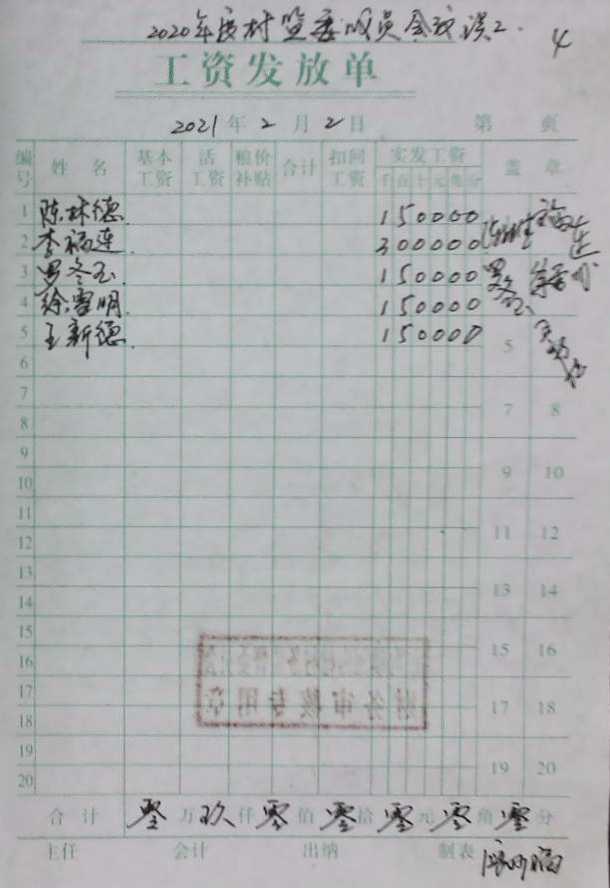 2020年度村监委成员会议误工 4
工资发放单
2021年2月2日 第 页
编号 姓名 基本工资 活工资 粮价补贴 合计 扣回工资 实发工资 盖章
千百十元角分
1 陈林德 150000
2 李福莲 300000
3 罗冬玉 150000
4 徐雪明 150000
5 王新德 150000 5
6
7 7 8
8
9 9 10
10
11 11 12
12
13 13 14
14
15 15 16
16
17 财务审核专用章 17 18
18
19 19 20
20
合计 零万玖仟零佰零拾零元零角零分
主任 会计 出纳 制表